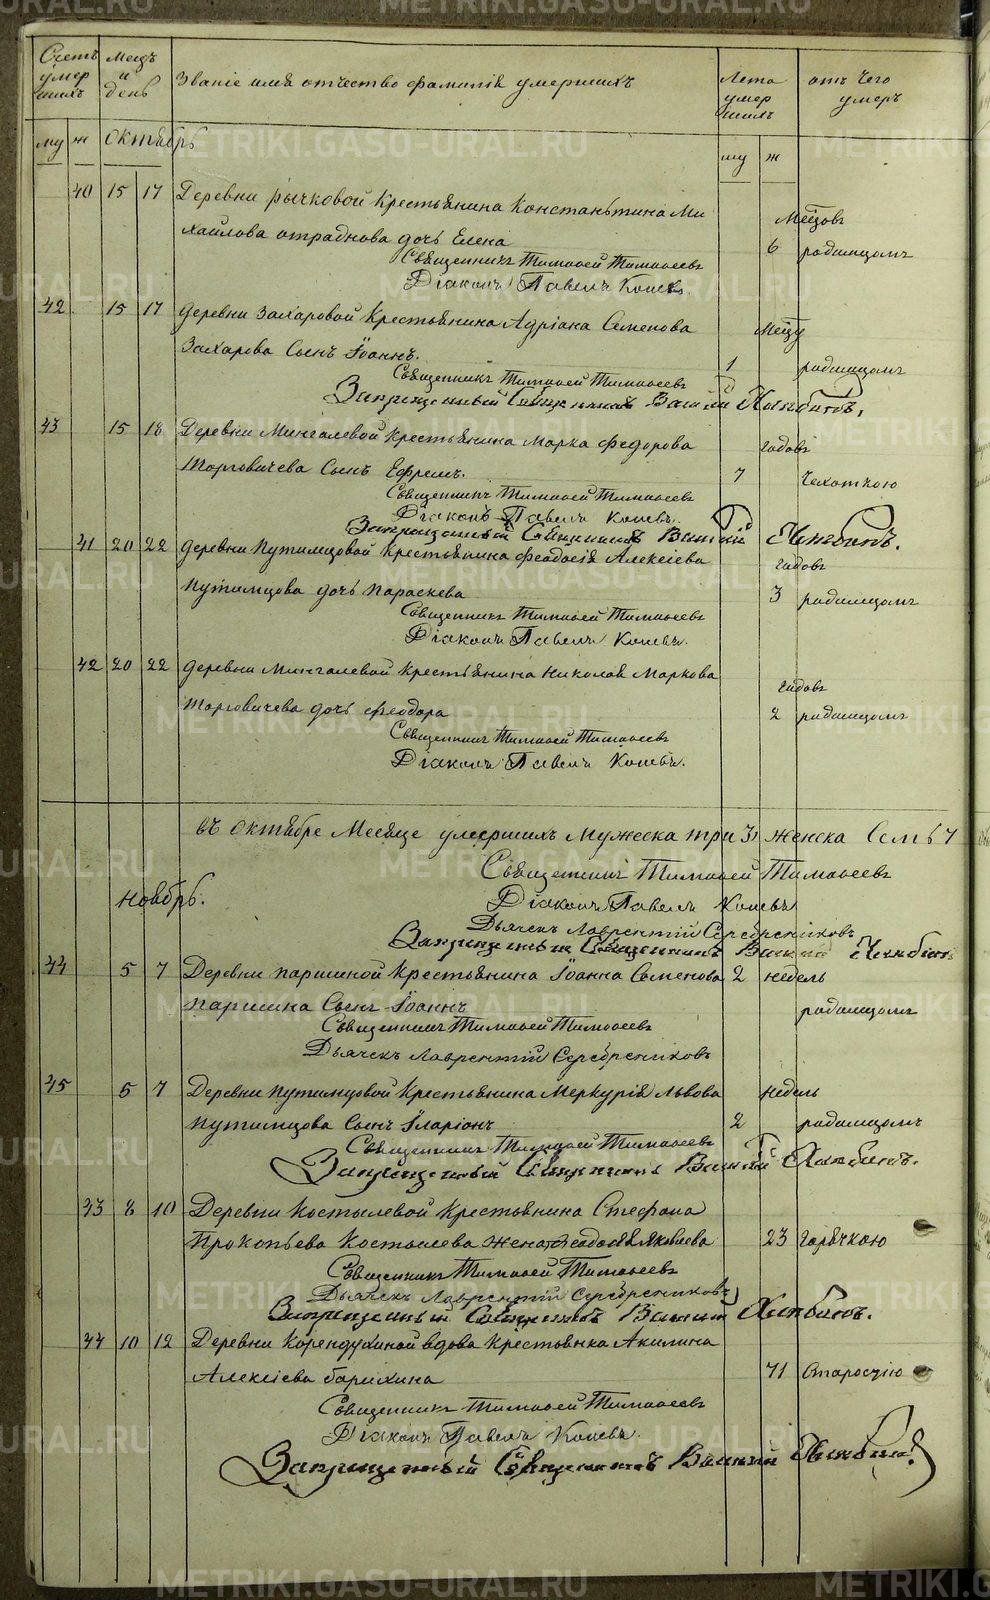 Счетъ умер шихъ
Месц и день
Званіе имя отчество фамилія умершихъ
Лета умер шихъ
отъ чего умеръ
му ж Октябрь му ж
40 15 17 Деревни Рычковой Крестьянина Константина Ми Месцовъ
хайлова отраднова дочь Елена 6 родимцомъ
Священникъ Тимофей Тимофеевъ
Діаконъ Павелъ Коневъ
42 15 17 Деревни Захаровой Крестьянина Адріана Семенова Месцу
Захарова Сынъ Іоаннъ. 1 родимцомъ
Священникъ Тимофей Тимофеевъ
Запрещенный Священникъ
43 15 18 Деревни Мингалевой Крестьянина Марка Федорова годовъ
Торговичева Сынъ Ефремъ. 7 Чехоткою
Священникъ Тимофей Тимофеевъ
Діаконъ Павелъ Коневъ.
Запрещенный Священникъ
41 20 22 Деревни Путимцовой Крестьянина Феодосія Алексіева годовъ
Путимцова дочь Параскева 3 родимцомъ
Священникъ Тимофей Тимофеевъ
Діаконъ Павелъ Коневъ.
42 20 22 Деревни Мингалевой Крестьянина Николая Маркова годовъ
Торговичева дочь Феодора 2 родимцомъ
Священникъ Тимофей Тимофеевъ
Діаконъ Павелъ Коневъ.
въ Октябре Месяце умершихъ Мужеска три 3, Женска Семь 7
Священникъ Тимофей Тимофеевъ
Ноябрь.
Діаконъ Павелъ Коневъ
Дьячекъ Лаврентій Серебрениковъ
Запрещенный Священникъ
44 5 7 Деревни Паршиной Крестьянина Іоанна Семенова 2 недель
Паршина Сынъ Іоаннъ родимцомъ
Священникъ Тимофей Тимофеевъ
Дьячекъ Лаврентій Серебрениковъ
45 5 7 Деревни Путимцовой Крестьянина Меркурія Львова недель
Путимцова Сынъ Іларіонъ 2 родимцомъ
Священникъ Тимофей Тимофеевъ
Запрещенный Священникъ
43 8 10 Деревни Костылевой Крестьянина Стефана
Прокопьева Костылева жена Феодосія Яковлева 23 горячкою
Священникъ Тимофей Тимофеевъ
Дьячекъ Лаврентій Серебрениковъ
Запрещенный Священникъ
44 10 12 Деревни Корендухиной вдова Крестьянка Акилина
Алексіева Барихина 71 Старостію
Священникъ Тимофей Тимофеевъ
Діаконъ Павелъ Коневъ.
Запрещенный Священникъ
METRIKI.GASO-URAL.RU